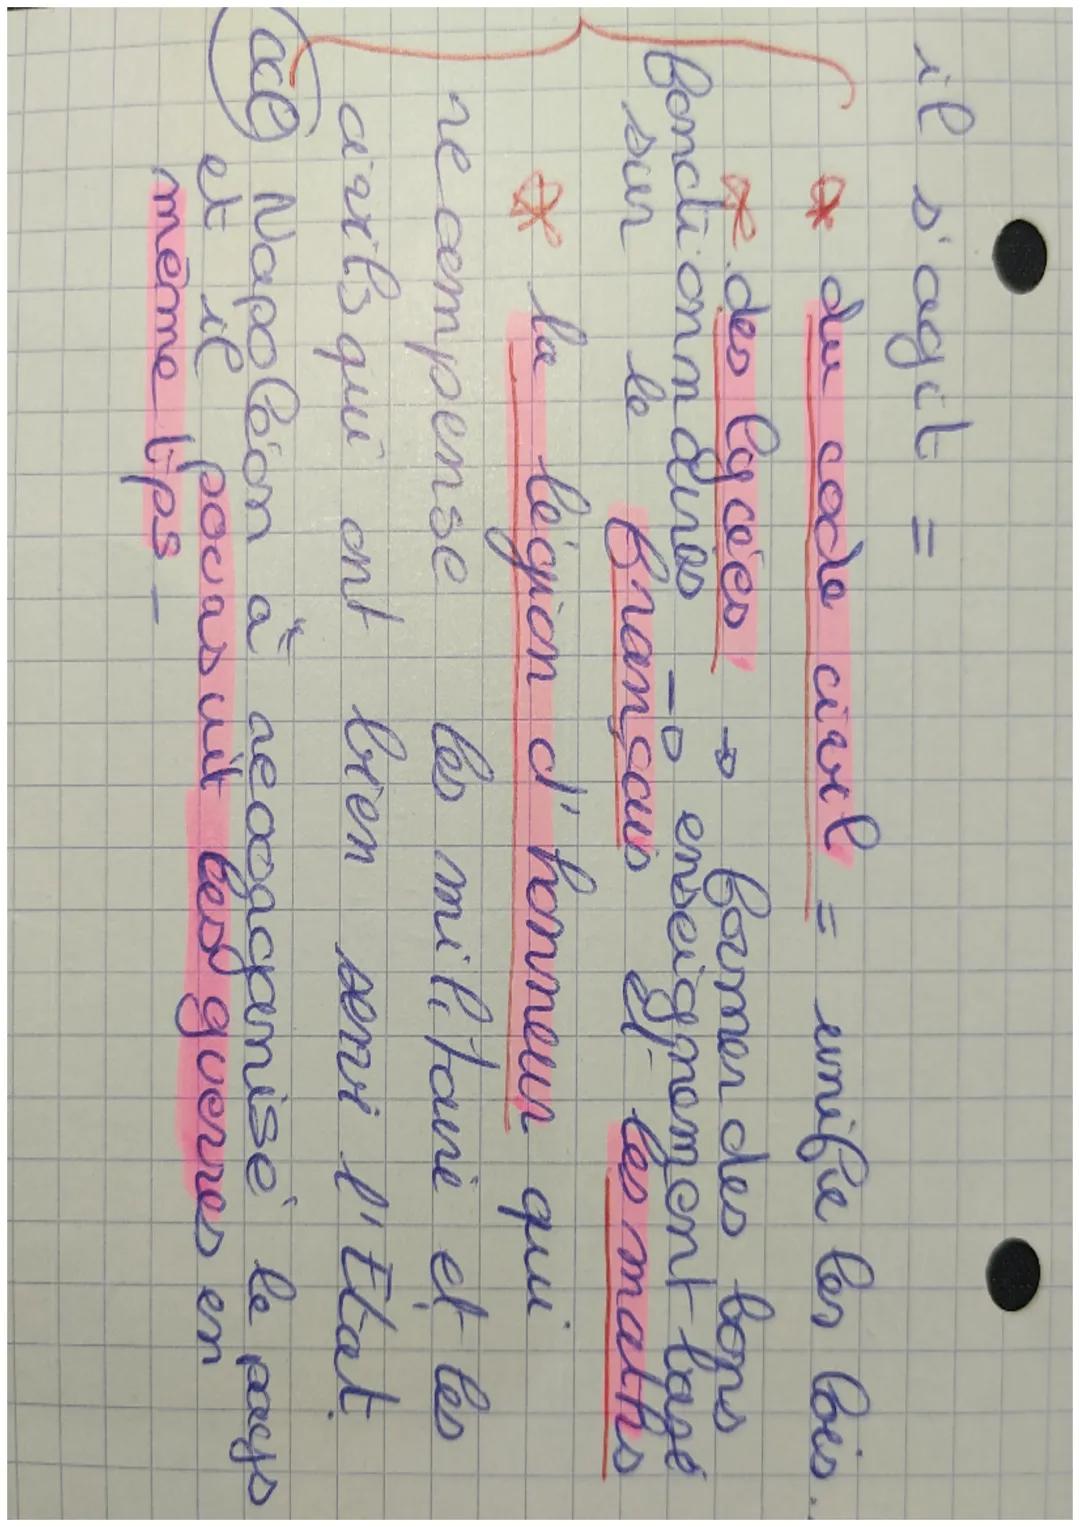 il s'agit =
* du code civil = unifie les lois.
* des lycées → former des bons
fonctionnaires → enseignement basé
sur le français et les maths
* la légion d'honneur qui
recompense les militaire et les
civils qui ont bien servi l'Etat.
ccl Napoléon a réorganisé le pays
et il poursuit les guerres en
même tps -